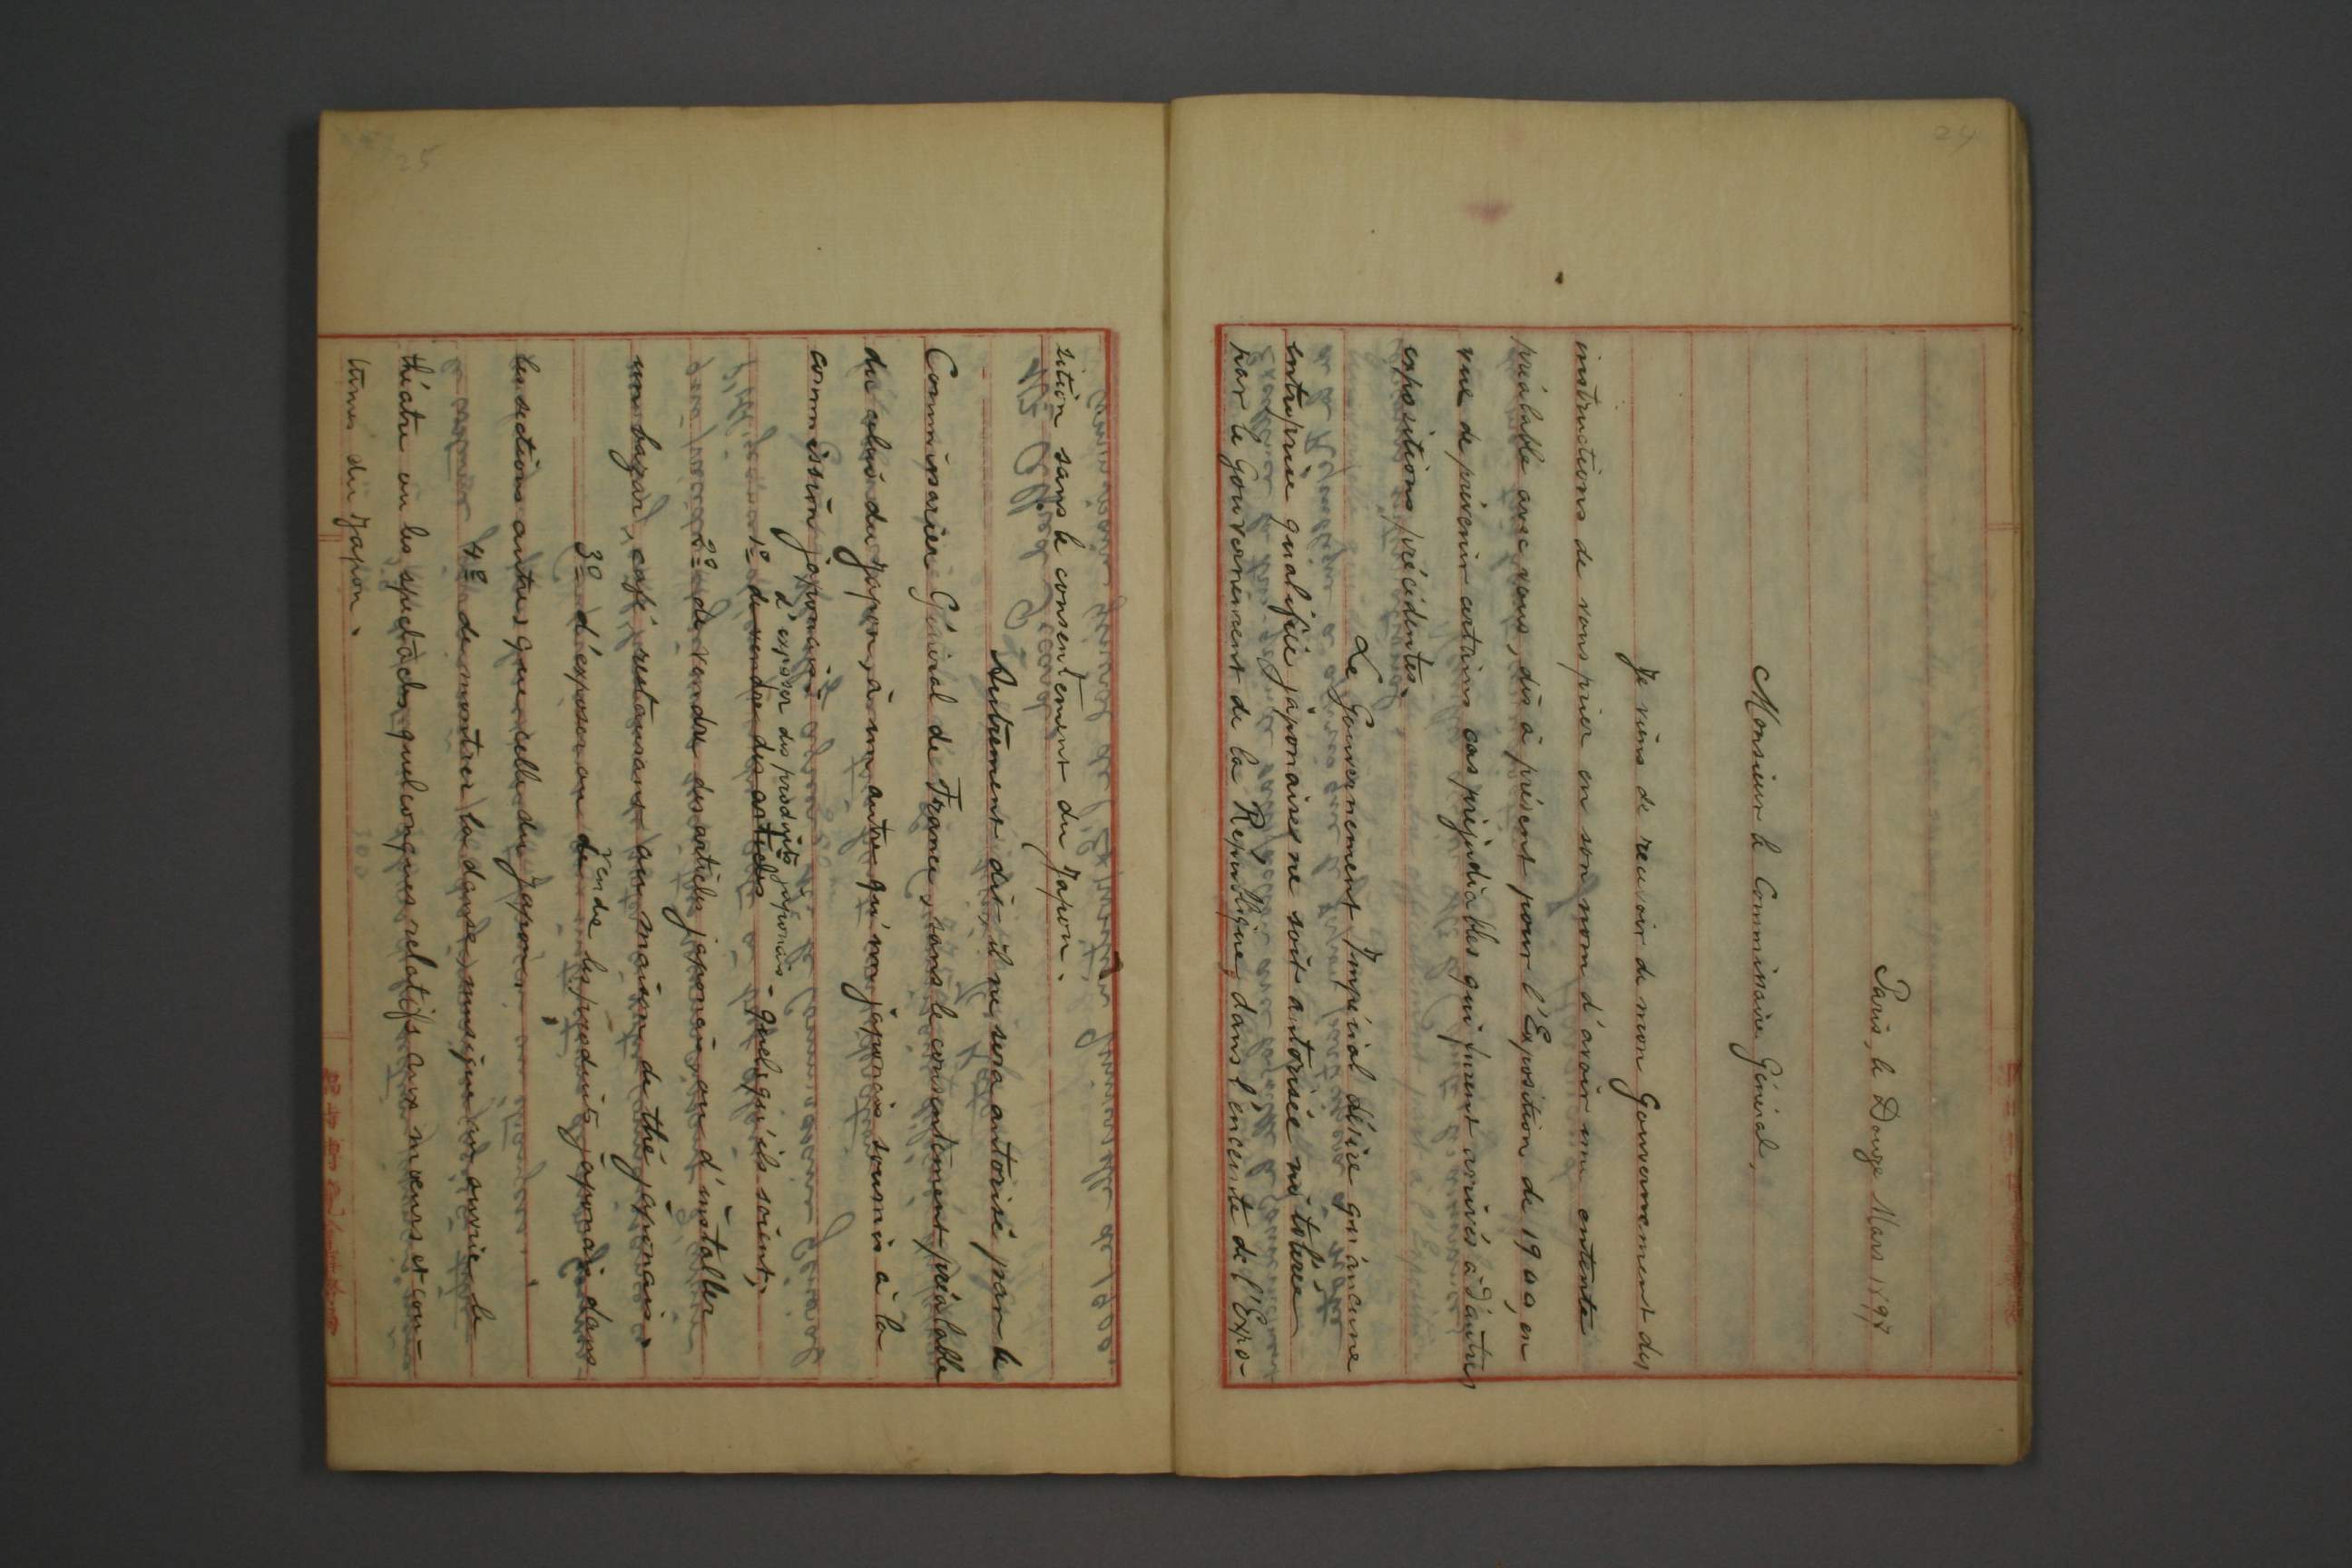 24
Paris, le Douze Mars 1897
Monsieur le Commissaire Général,
Je viens de recevoir de mon Gouvernement des
instructions de vous prier en son nom d'avoir une entente
préalable avec vous, dès à présent pour l'Exposition de 1900, en
vue de prévenir certains cas préjudiciables qui furent arrivés à d'autres
expositions précédentes.
Le Gouvernement Impérial désire qu'aucune
entreprise qualifiée japonaise ne soit autorisée ni tolérée
par le Gouvernement de la République, dans l'enceinte de l'Expo-
25
sition sans le consentement du Japon.
Autrement dit, il ne sera autorisé par le
Commissariat Général de France, sans le consentement préalable
de celui du Japon, à un autre qui non japonais soumis à la
commission japonaise
d'exposer des produits japonais
1º de vendre des articles - quels qu'ils soient;
2º de vendre des articles japonais ou d'installer
un bazar, café, restaurant ou maison de thé japonais.
vendre
3º d'exposer ou de les produits japonais dans
les sections autres que celle du Japon
4º de montrer la danse, musique ou ouvrir le
théâtre ou les spectacles quelconques relatifs aux mœurs et cou-
tumes du Japon.